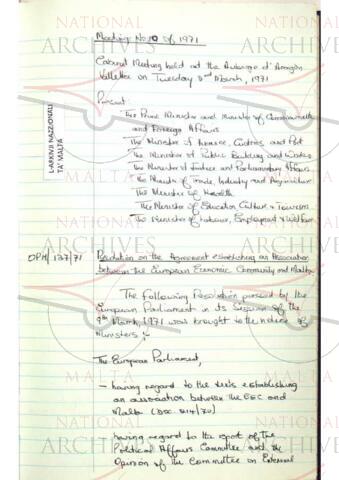 Meeting No. 10 of 1971
Cabinet Meeting held at the Auberge d'Aragon
Valletta on Tuesday 2nd March, 1971
Present
The Prime Minister and Minister of Commonwealth
and Foreign Affairs
The Minister of Finance, Customs and Port
The Minister of Public Building and Works
The Minister of Justice and Parliamentary Affairs
The Minister of Trade, Industry and Agriculture
The Minister of Health
The Minister of Education Culture & Tourism
The Minister of Labour, Employment & Welfare
OPM/137/71
Resolution on the Agreement establishing an Association
between the European Economic Community and Malta
The following Resolution passed by the
European Parliament in its Session of the
9th March, 1971 was brought to the notice of
Ministers :-
The European Parliament,
- having regard to the texts establishing
an association between the EEC and
Malta (Doc
- having regard to the report of the
Political Affairs Committee and the
Opinion of the Committee on External
NATIONAL
ARCHIVES
MALTA
L-ARKIVJI NAZZJONALI
TA' MALTA